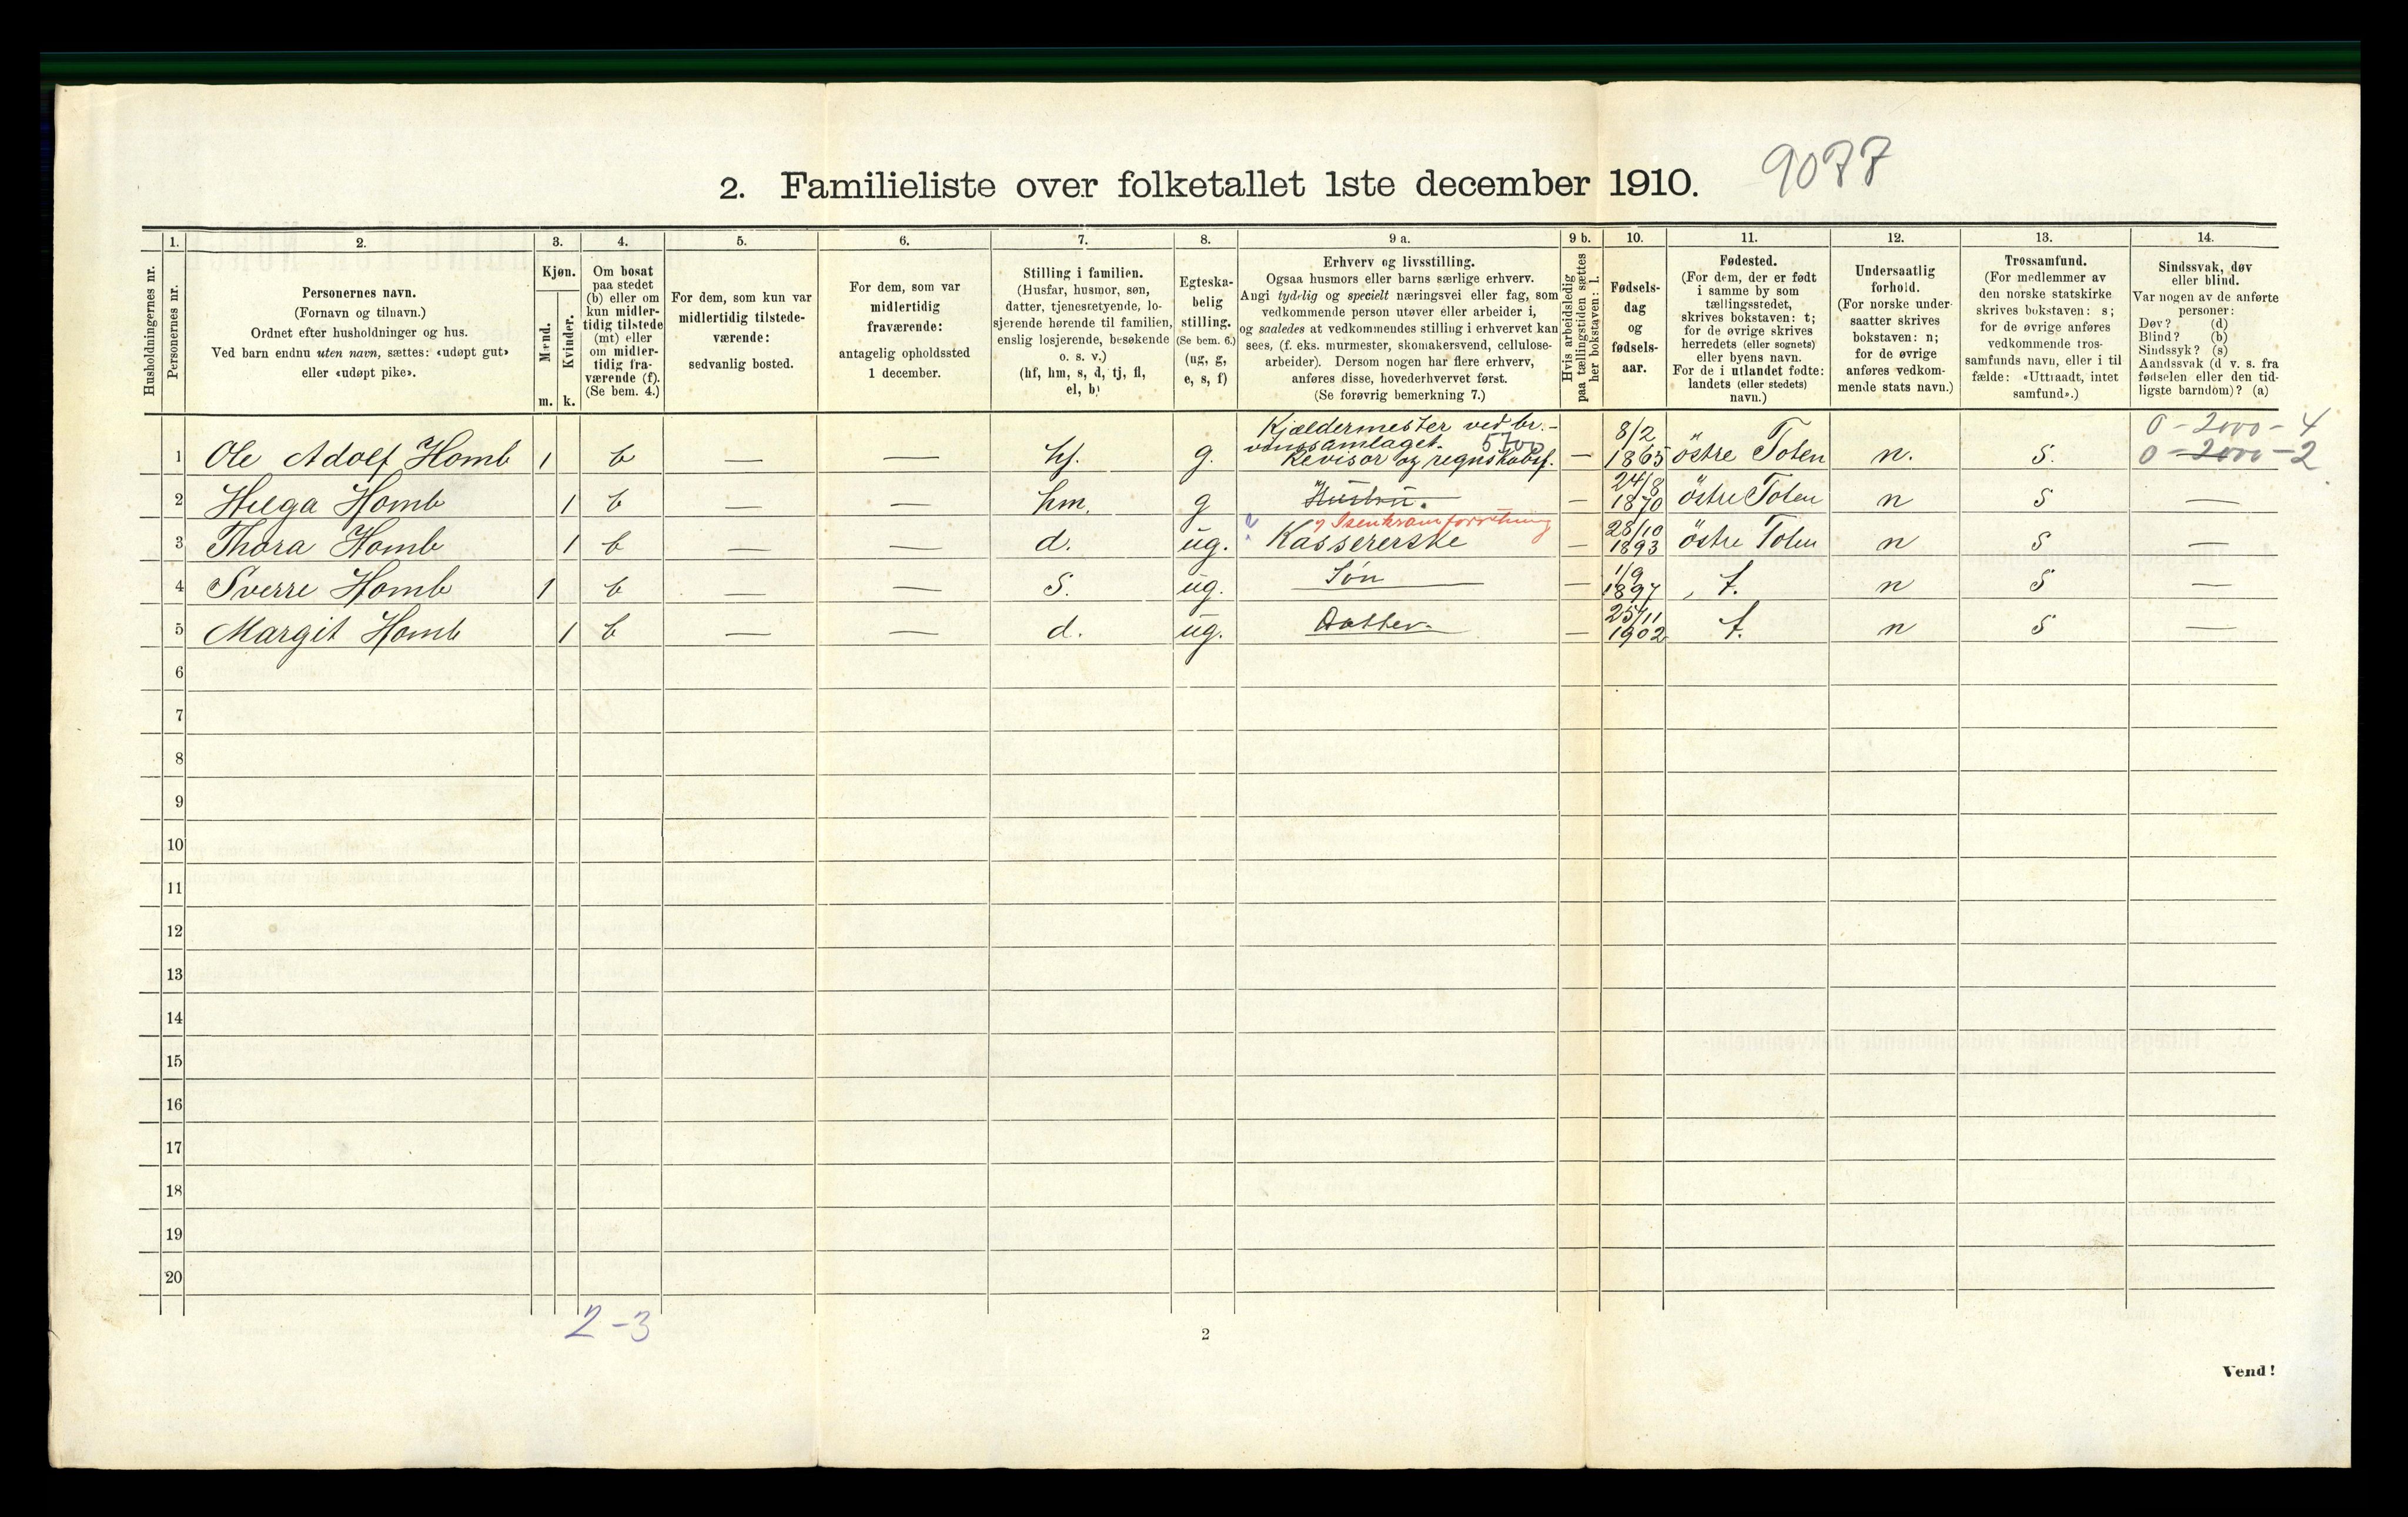 2. Familieliste over folketallet 1ste december 1910. 9077
Husholdningernes nr.
1.
Personernes nr.
2.
Personernes navn.
(Fornavn og tilnavn.)
Ordnet efter husholdninger og hus.
Ved barn endnu uten navn, sættes: «udøpt gut»
eller «udøpt pike».
3.
Kjøn.
Mænd.
Kvinder.
m. k.
4.
Om bosat
paa stedet
(b) eller om
kun midler-
tidig tilstede
(mt) eller
om midler-
tidig fra-
værende (f).
(Se bem. 4.)
5.
For dem, som kun var
midlertidig tilstede-
værende:
sedvanlig bosted.
6.
For dem, som var
midlertidig
fraværende:
antagelig opholdssted
1 december.
7.
Stilling i familien.
(Husfar, husmor, søn,
datter, tjenestetyende, lo-
sjerende hørende til familien,
enslig losjerende, besøkende
o. s. v.)
(hf, hm, s, d, tj, fl,
el, b)
8.
Egteska-
belig
stilling.
(Se bem. 6.)
(ug, g,
e, s, f)
9 a.
Erhverv og livsstilling.
Ogsaa husmors eller barns særlige erhverv.
Angi tydelig og specielt næringsvei eller fag, som
vedkommende person utøver eller arbeider i,
og saaledes at vedkommendes stilling i erhvervet kan
sees, (f. eks. murmester, skomakersvend, cellulose-
arbeider). Dersom nogen har flere erhverv,
anføres disse, hovederhvervet først.
(Se forøvrig bemerkning 7.)
9 b.
Hvis arbeidsledig
paa tællingstiden sættes
her bokstaven: l.
10.
Fødsels-
dag
og
fødsels-
aar.
11.
Fødested.
(For dem, der er født
i samme by som
tællingsstedet,
skrives bokstaven: t;
for de øvrige skrives
herredets (eller sognets)
eller byens navn.
For de i utlandet fødte:
landets (eller stedets)
navn.)
12.
Undersaatlig
forhold.
(For norske under-
saatter skrives
bokstaven: n;
for de øvrige
anføres vedkom-
mende stats navn.)
13.
Trossamfund.
(For medlemmer av
den norske statskirke
skrives bokstaven: s;
for de øvrige anføres
vedkommende tros-
samfunds navn, eller i til
fælde: «Uttraadt, intet
samfund».)
14.
Sindssvak, døv
eller blind.
Var nogen av de anførte
personer:
Døv? (d)
Blind? (b)
Sindssyk? (s)
Aandssvak (d v. s. fra
fødselen eller den tid-
ligste barndom)? (a)
Kjældermester ved br.- 8/2 0-2000-4
vinssamlaget. 5700
1 Ole Adolf Homb 1 b — — hf. g. Revisor og regnskabsf. — 1865 östre Toten n. s. 0-2000-2
24/8
2 Helga Homb 1 b — — hm. g Hustru. — 1870 östre Toten n s —
? i Isenkramforretning 28/10
3 Thora Homb 1 b — — d. ug. Kassererske — 1893 östre Toten n s —
1/9
4 Sverre Homb 1 b — — s. ug. Søn — 1897 t. n s —
25/11
5 Margit Homb 1 b — — d. ug. Datter — 1902 t. n s —
6
7
8
9
10
11
12
13
14
15
16
17
18
19
20
2-3
2
Vend!